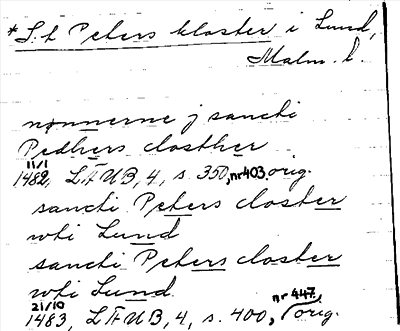 *S:t Peters kloster i Lund,
Malm. l.
nønnerne j sancti
Pedhers closther
11/1
1482, LÄUB, 4, s. 350, nr 403, orig.
sancti Peters closter
wti Lund
sancti Peters closter
wti Lund
21/10 nr 447,
1483, LÄUB, 4, s. 400, orig.